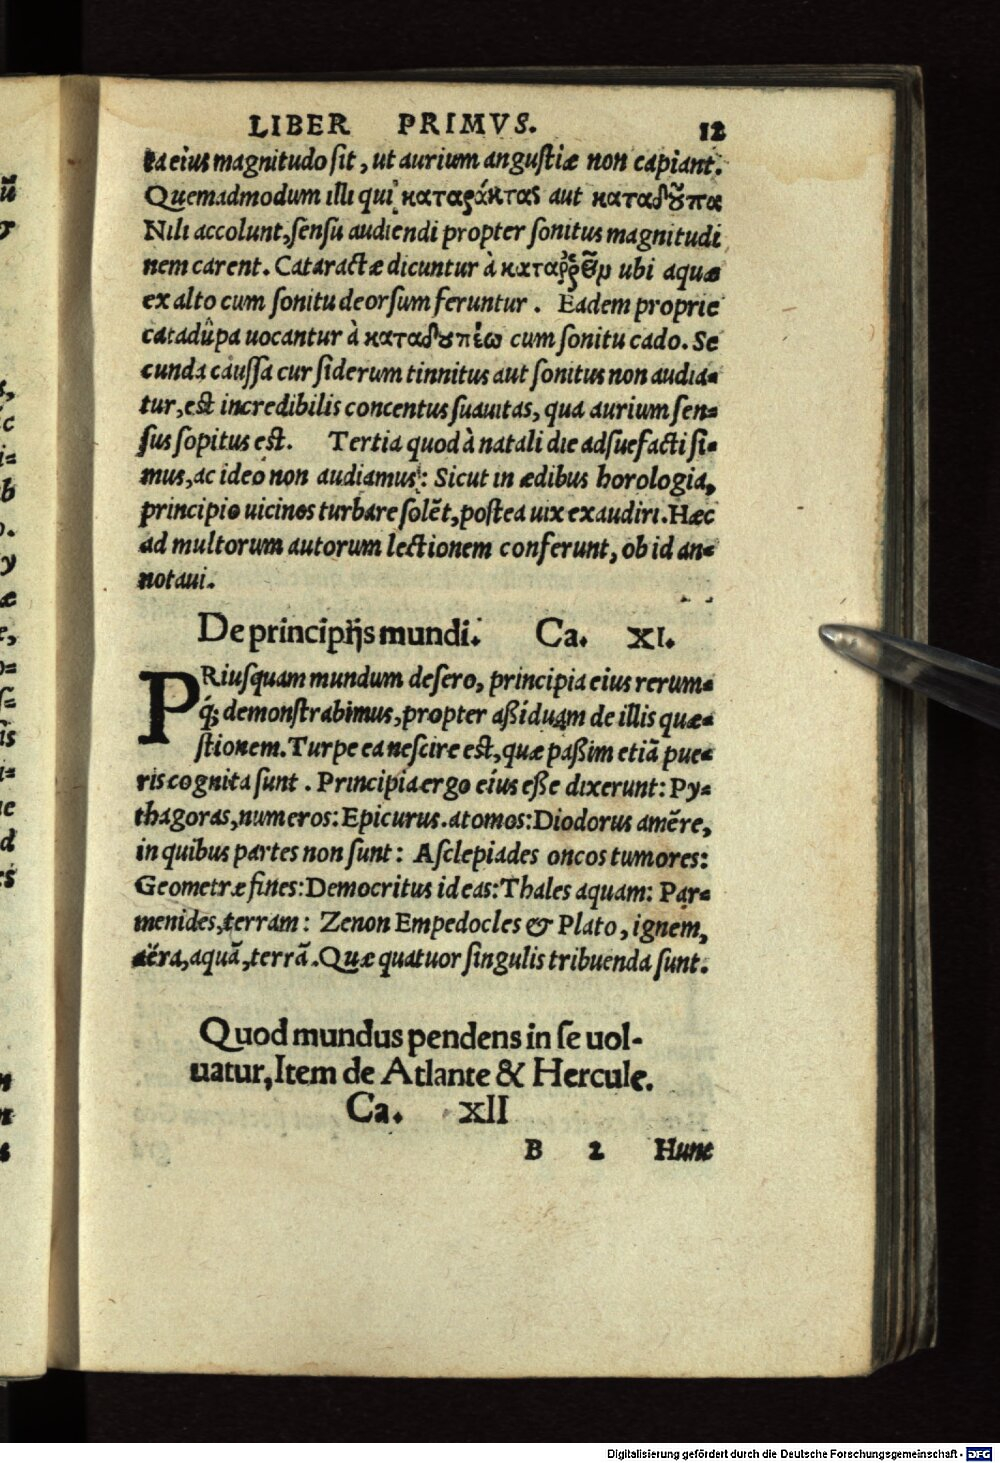 LIBER PRIMVS. 12
ta eius magnitudo sit, ut aurium angustiæ non capiant.
Quemadmodum illi qui καταράκτας aut καταδȣ͂πα
Nili accolunt, sensu audiendi propter sonitus magnitudi
nem carent. Cataractæ dicuntur à ubi aquæ
ex alto cum sonitu deorsum feruntur. Eadem proprie
catadûpa uocantur à καταδȣπέω cum sonitu cado. Se
cunda caussa cur siderum tinnitus aut sonitus non audia=
tur, est incredibilis concentus suauitas, qua aurium sen=
sus sopitus est. Tertia quod à natali die adsuefacti si=
mus, ac ideo non audiamus: Sicut in ædibus horologia,
principio uicinos turbare solẽt, postea uix exaudiri. Hæc
ad multorum autorum lectionem conferunt, ob id an=
notaui.
De principijs mundi. Ca. XI.
PRiusquam mundum desero, principia eius rerum=
q́; demonstrabimus, propter aßiduam de illis quæ=
stionem. Turpe ea nescire est, quæ paßim etiã pue=
ris cognita sunt. Principia ergo eius eße dixerunt: Py=
thagoras, numeros: Epicurus. atomos: Diodorus amẽre,
in quibus partes non sunt: Asclepiades oncos tumores:
Geometræ fines: Democritus ideas: Thales aquam: Par=
menides, terram: Zenon Empedocles & Plato, ignem,
aëra, aquã, terrã. Quæ quatuor singulis tribuenda sunt.
Quod mundus pendens in se uol-
uatur, Item de Atlante & Hercule.
Ca. XII
B 2 Hunc
Digitalisierung gefördert durch die Deutsche Forschungsgemeinschaft - DFG